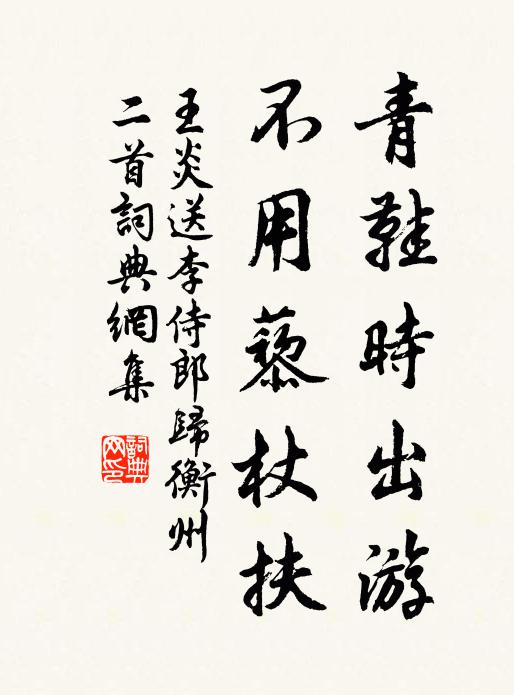 青鞋時出游
不用藜杖扶
王炎送李侍郎歸衡州
二首詞典網集
詞典
网印